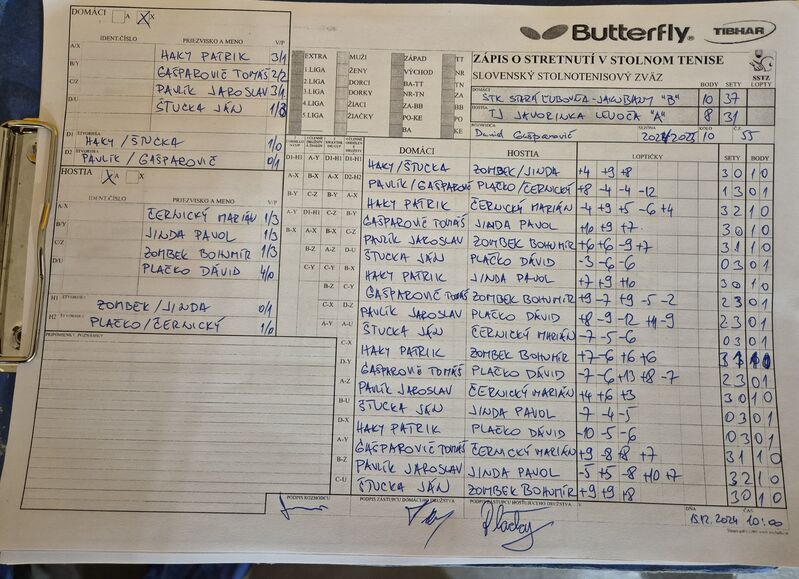 DOMÁCI A X
Butterfly
TIBHAR
IDENT.ČÍSLO PRIEZVISKO A MENO V/P
A/X HAKY PATRIK 3/1
B/Y GAŠPAROVIČ TOMÁŠ 2/2
C/Z PAVLÍK JAROSLAV 3/1
D/U ŠTUCKA JÁN 1/3
D1 ŠTVORHRA 1 HAKY/ŠTUCKA 1/0
D2 ŠTVORHRA 2 PAVLÍK/GAŠPAROVIČ 0/1
EXTRA MUŽI ZÁPAD TT
1.LIGA ŽENY VÝCHOD NR
2.LIGA DORCI BA-TT TN
3.LIGA DORKY NR-TN ZA
4.LIGA ŽIACI ZA-BB BB
5.LIGA ŽIAČKY PO-KE PO
BA KE
ZÁPIS O STRETNUTÍ V STOLNOM TENISE
SLOVENSKÝ STOLNOTENISOVÝ ZVÄZ
SSTZ
BODY SETY LOPTY
DOMÁCI ŠTK STARÁ ĽUBOVŇA-JAKUBANY "B" 10 37
HOSTIA TJ JAVORINKA LEVOČA "A" 8 31
ROZHODCA SEZÓNA KOLO Č.Z.
David Gašparovič 2024/2025 10 55
HOSTIA X
IDENT.ČÍSLO PRIEZVISKO A MENO V/P
A/X ČERNICKÝ MARIÁN 1/3
B/Y JINDA PAVOL 1/3
C/Z ZOMBEK BOHUMÍR 1/3
D/U PLAČKO DÁVID 4/0
H1 ŠTVORHRA 1 ZOMBEK/JINDA 0/1
H2 ŠTVORHRA 2 PLAČKO/ČERNICKÝ 1/0
PRIPOMIENKY, POZNÁMKY
DOMÁCI HOSTIA LOPTIČKY SETY BODY
HAKY/ŠTUCKA ZOMBEK/JINDA +4 +9 +8 3 0 1 0
PAVLÍK/GAŠPAROVIČ PLAČKO/ČERNICKÝ +8 -4 -4 -12 1 3 0 1
HAKY PATRIK ČERNICKÝ MARIÁN -4 +9 +5 -6 +4 3 2 1 0
GAŠPAROVIČ TOMÁŠ JINDA PAVOL +10 +9 +7 3 0 1 0
PAVLÍK JAROSLAV ZOMBEK BOHUMÍR +6 +6 -9 +7 3 1 1 0
ŠTUCKA JÁN PLAČKO DÁVID -3 -6 -6 0 3 0 1
HAKY PATRIK JINDA PAVOL +7 +9 +10 3 0 1 0
GAŠPAROVIČ TOMÁŠ ZOMBEK BOHUMÍR +9 -7 +9 -5 -2 2 3 0 1
PAVLÍK JAROSLAV PLAČKO DÁVID +8 -9 -12 +11 -9 2 3 0 1
ŠTUCKA JÁN ČERNICKÝ MARIÁN -7 -5 -6 0 3 0 1
HAKY PATRIK ZOMBEK BOHUMÍR +7 -6 +6 +6 3 1 1 0
GAŠPAROVIČ TOMÁŠ PLAČKO DÁVID -7 -6 +13 +8 -7 2 3 0 1
PAVLÍK JAROSLAV ČERNICKÝ MARIÁN +4 +6 +3 3 0 1 0
ŠTUCKA JÁN JINDA PAVOL -7 -4 -5 0 3 0 1
HAKY PATRIK PLAČKO DÁVID -10 -5 -6 0 3 0 1
GAŠPAROVIČ TOMÁŠ ČERNICKÝ MARIÁN +9 -8 +8 +7 3 1 1 0
PAVLÍK JAROSLAV JINDA PAVOL -5 +5 -8 +10 +7 3 2 1 0
ŠTUCKA JÁN ZOMBEK BOHUMÍR +9 +9 +8 3 0 1 0
PODPIS ROZHODCU PODPIS ZÁSTUPCU DOMÁCEHO DRUŽSTVA PODPIS ZÁSTUPCU HOSŤUJÚCEHO DRUŽSTVA V DŇA ČAS
15.12.2024 10:00